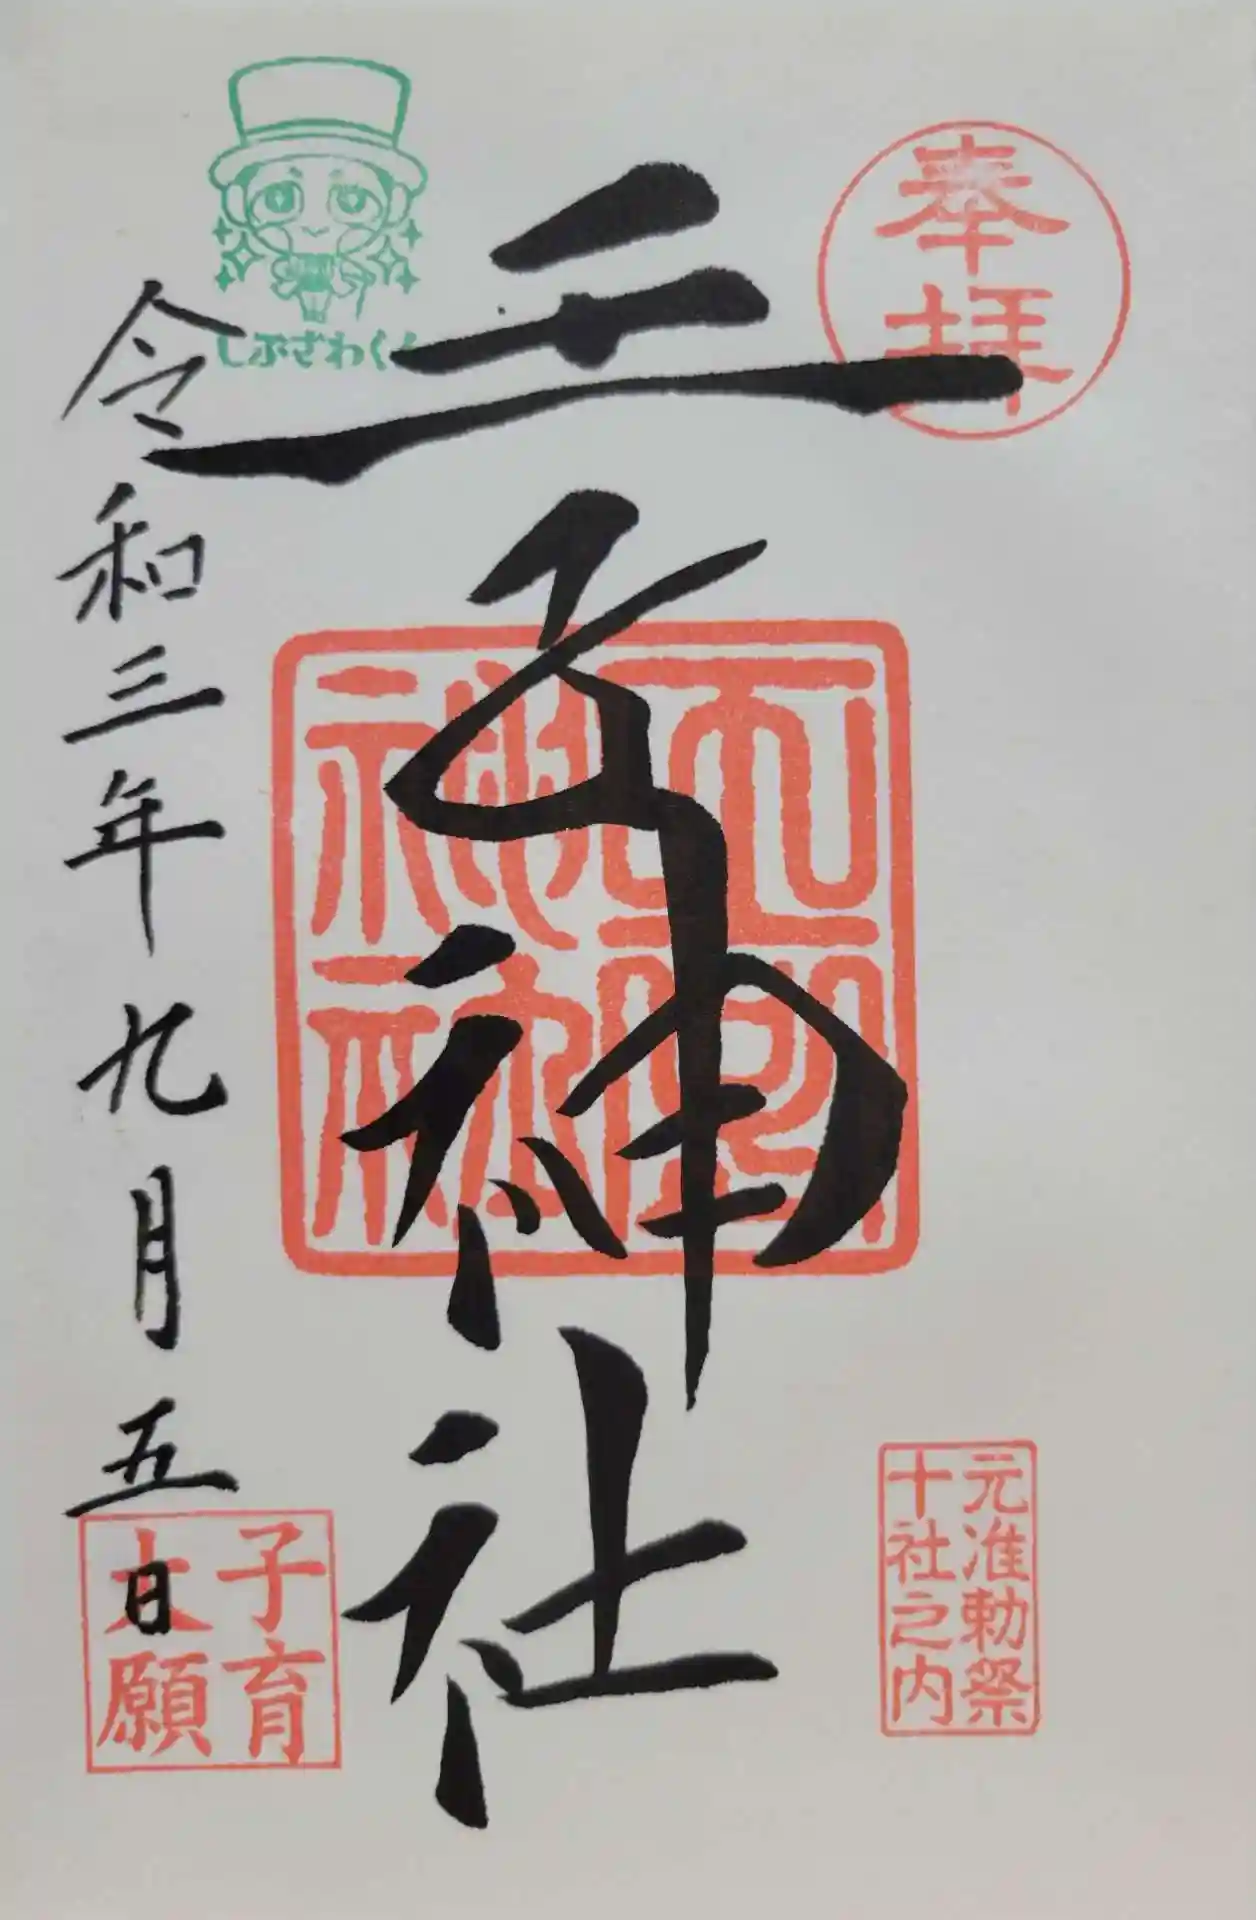 奉拝
元准勅祭
十社之内
王子神社
しぶざわくん
令和三年九月五日
子育
大願